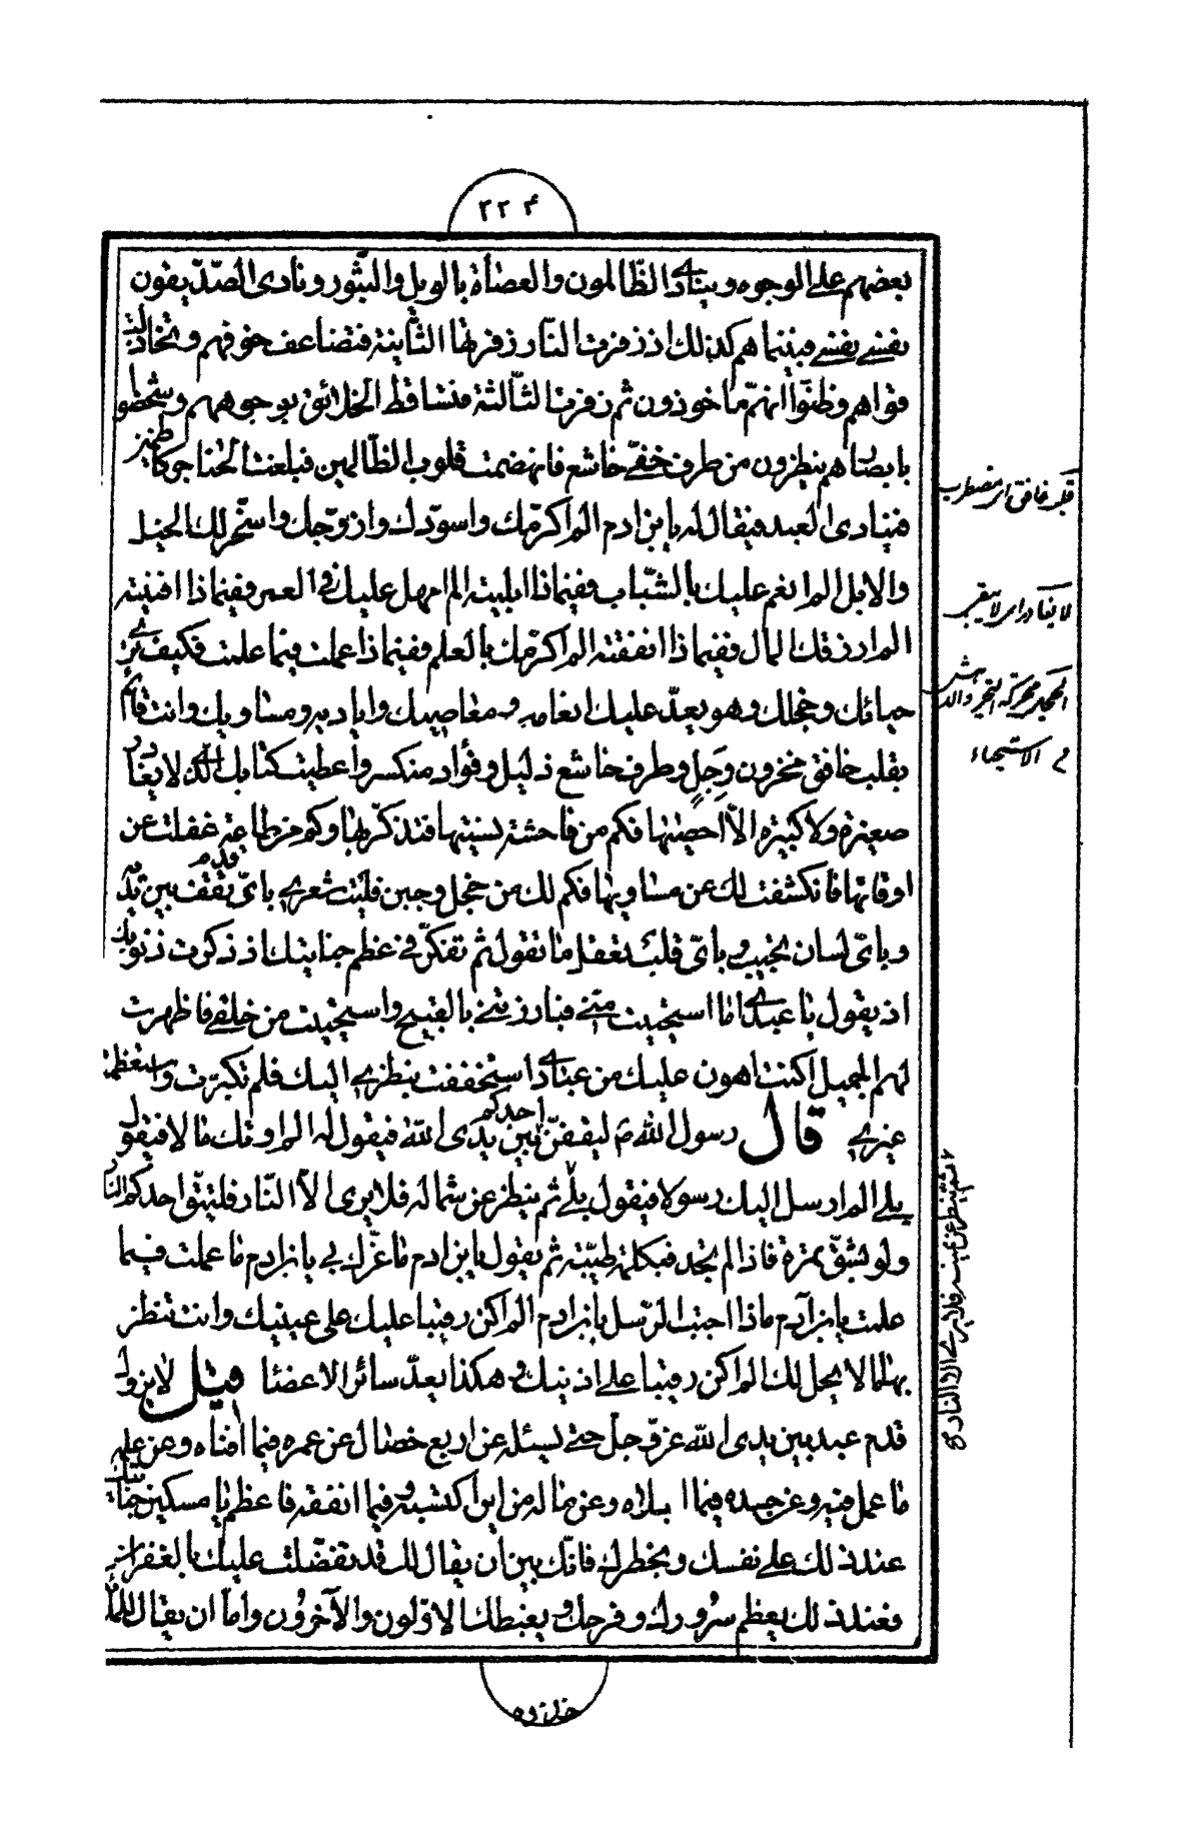 ٢٢٤
بعضهم على الوجوه وينادى الظّالمون والعصاة بالويل والثّبور ونادى الصّدّيقون
نفسى نفسى فبينما هم كذلك اذ زفرت النّار زفرتها الثّانية فتضاعف خوفهم وتخاذلت
قواهم وظنّوا انهم مأخوذون ثم زفرت الثّالثة فتساقط الخلائق بوجوههم وشخصوا
بابصارهم ينظرون من طرف خفىّ خاشع فانهضمت قلوب الظّالمين فبلغت الحناجر كاظمين
فينادى العبد فيقال له يا بن ادم الم اكرّمك واسوّدك وازوّجك واسخّر لك الخيل
والابل الم انعم عليك بالشّباب ففيما ذا ابليته الم امهل عليك فى العمر ففيما ذا افنيته
الم ارزقك المال ففيما ذا انفقته الم اكرّمك بالعلم ففيما ذا عملت فيما علمت فكيف ترى
حيائك وخجلك وهو يعدّ عليك انعامه ومعاصيك واياديه ومساويك وانت قائم
بقلب خافق محزون وَجِلٍ وطرف خاشع ذليل وفؤاد منكسر واعطيت كتابك الذى لا يغادر
صغيرة ولا كبيرة الّا احصيها فكم من فاحشة نسيتها فتذكّرتها وكم من طاعة غفلت عن
اوقاتها فانكشفت لك عن مساويها فكم لك من خجل وجبن فليت شعرى باىّ قدم تقف بين يديه
وباىّ لسان تجيب وباىّ قلب تعقل ما تقول ثم تفكّر فى عظم جنايتك اذ ذكرت ذنوبك
اذ يقول يا عبدى اما استحييت منّى فبارزتنى بالقبيح واستحييت من خلقى فاظهرت
لهم الجميل اكنت اهون عليك من عبادى استخففت بنظرى اليك فلم تكبرّت واستعظمت
غيرى قال رسول اللّه ص ليقفنّ احدكم بين يدى اللّه فيقول له الم اوتك مالا فيقول
بلى الم ارسل اليك رسولا فيقول بلى ثم ينظر عن شماله فلا يرى الّا النّار فليتّق احدكم النار
ولو بشقّ تمرة فاذا لم تجد فبكلمة طيّبة ثم يقول يا بن ادم ما غرّك بى يا بن ادم ما عملت فيما
علمت يا بن آدم ماذا اجبت الرّسل يا بن ادم الم اكن رقيبا عليك على عينيك وانت تنظر
بهما لما لا يحل لك الم اكن رقيبا على اذنيك وهكذا يعدّ سائر الاعضاء قيل لا يزول
قدم عبد بين يدى اللّه عزّ وجلّ حتى يسئله عن اربع خصال عن عمره فيما افناه وعن علمه
ما عمل فيه وعن جسده فيما ابلاه وعن ماله من اين اكتسبه وفيما انفقه فاعظم يا مسكين بحيائك
عند ذلك على نفسك وبخطرك فانّك بين ان يقال لك قد تفضّلت عليك بالغفران
فعند ذلك يعظم سرورك وفرحك ويغبطك الاوّلون والآخرون وامّا ان يقال للملائكة
خذوه
قلب خافق اى مضطرب
لا يغادر اى لا يبقى
م الاستحياء
ثم ينظر عن يمينه فلا يرى الا النار صح